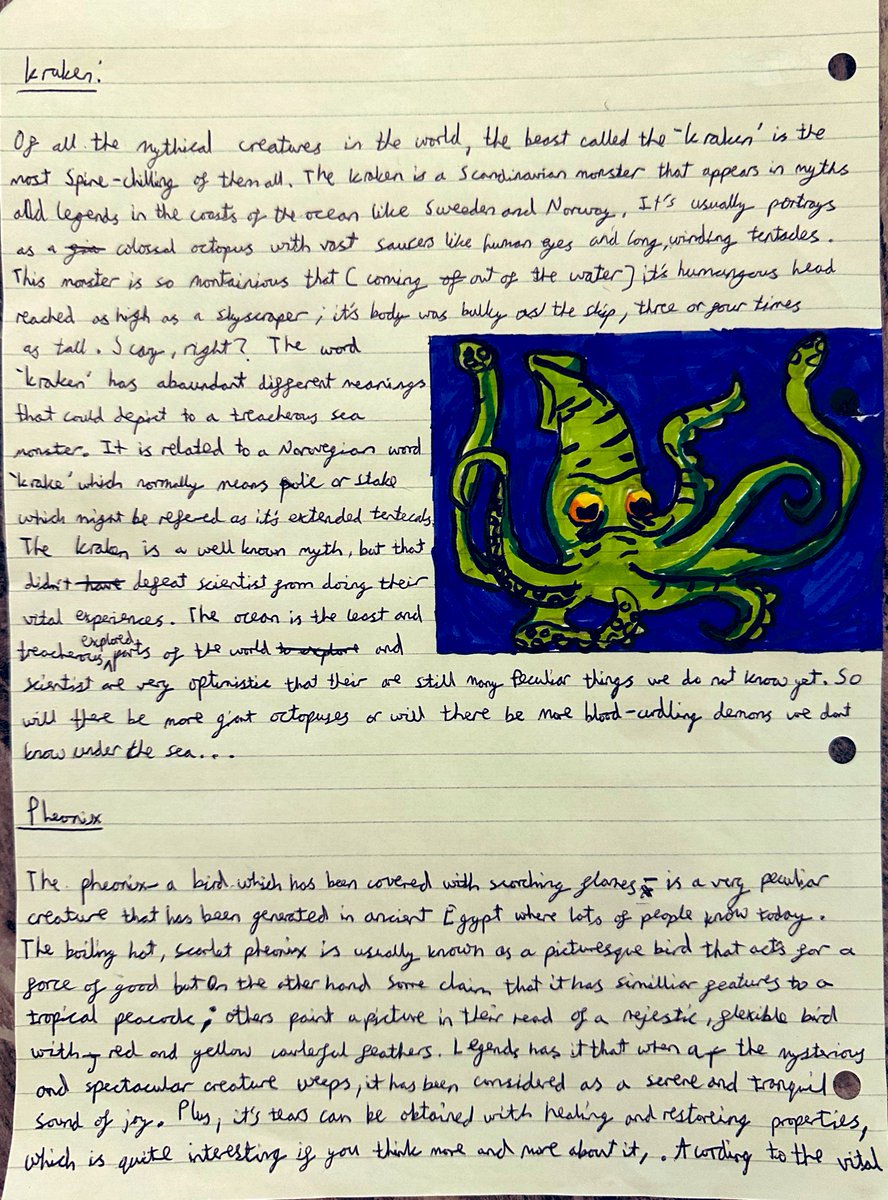 Kraken:
Of all the mythical creatures in the world, the beast called the "kraken' is the
most Spine-chilling of them all. The kraken is a Scandinavian monster that appears in myths
and legends in the coasts of the ocean like Sweeden and Norway. It's usually portrays
as a colossal octopus with vast saucers like human eyes and long, winding tentacles.
This monster is so montainious that ( coming of out of the water) it's humangous head
reached as high as a skyscraper; it's body was bulky as the ship, three or four times
as tall. Scary, right? The word
'kraken' has abaundant different meanings
that could depict to a treacherous sea
monster. It is related to a Norwegian word
'krake' which normally means pole or stake
which might be refered as it's extended tentecals.
The kraken is a well known myth, but that
didn't have defeat scientist from doing their
vital experiences. The ocean is the least and
treacherous explored parts of the world to explore and
scientist are very optimistic that their are still many peculiar things we do not know yet. So
will there be more giant octopuses or will there be more blood-curdling demons we dont
know under the sea...
Pheonix
The pheonix- a bird which has been covered with scorching flames- is a very peculiar
creature that has been generated in ancient Egypt where lots of people know today.
The boiling hot, scarlet pheonix is usually known as a picturesque bird that acts for a
force of good but on the other hand some claim that it has similliar features to a
tropical peacock; others paint a picture in their head of a mejestic, flexible bird
with red and yellow coulerful feathers. Legends has it that when the mysterious
and spectacular creature weeps, it has been considered as a serene and tranquil
sound of joy. Plus, it's tears can be obtained with healing and restoreing properties,
which is quite interesting if you think more and more about it,. Acording to the vital